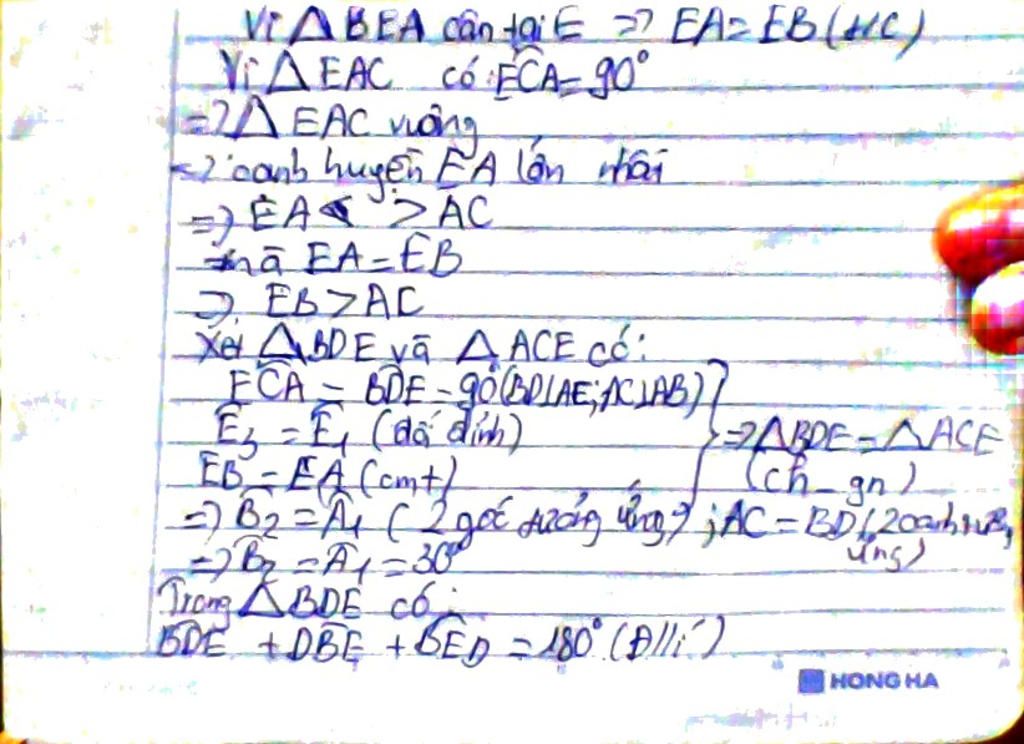 Vì △BEA cân tại E => EA=EB(t/c)
Vì △EAC có ECA=90°
=> △EAC vuông
=> canh huyền EA lớn nhất
=> EA > AC
mà EA=EB
=> EB>AC
Xét △BDE và △ACE có:
ECA = BDE = 90°(BD⊥AE;AC⊥AB)
E3 = E1 (đối đỉnh)
=> △BDE = △ACE
EB = EA (cmt)
(ch_gn)
=> B2 = A1 (2 góc tương ứng) ; AC = BD (2 cạnh
ứng)
=> B2 = A1 = 30°
Trong △BDE có:
BDE + DBE + BED = 180° (Đ/lí)
HONG HA